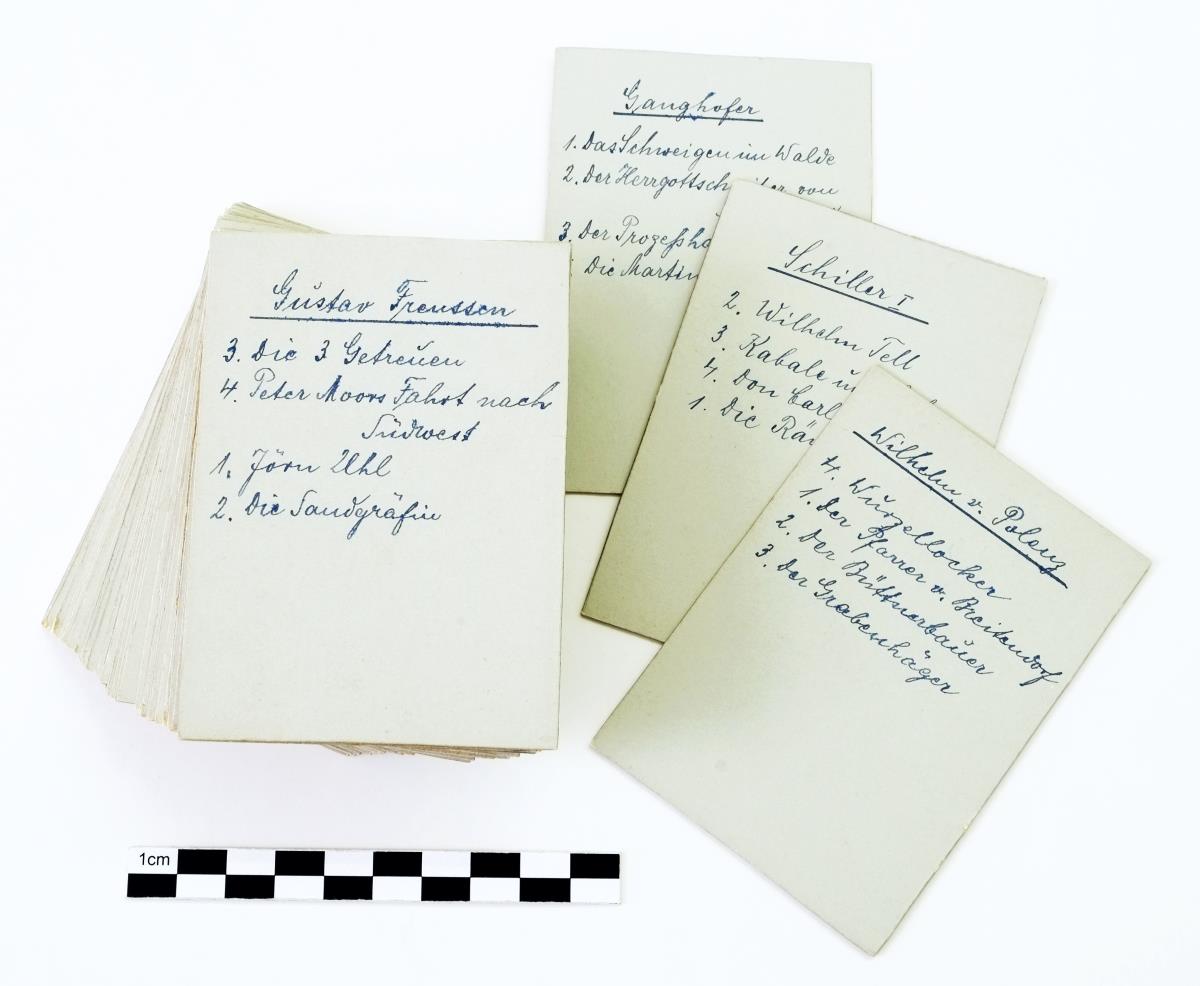 Gustav Frenssen
3. Die 3 Getreuen
4. Peter Moors Fahrt nach
Südwest
1. Jörn Uhl
2. Die Sandgräfin
Ganghofer
1. Das Schweigen im Walde
2. Der Herrgottsch von
3. Der Prozeßha
Die Martin
Schiller I
2. Wilhelm Tell
3. Kabale u
4. Don Carl
1. Die Räu
Wilhelm v. Polenz
4. Wurzellocker
1. Der Pfarrer v. Breitendorf
2. Der Büttnerbauer
3. Der Grabenhäger
1cm